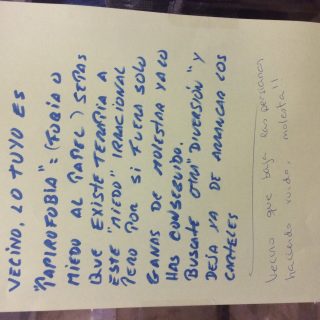 VECINO LO TUYO ES
"PAPIROFOBIA" = (FOBIA O
MIEDO AL PAPEL) SEPAS
QUE EXISTE TERAPIA A
ESTE "MIEDO" IRRACIONAL
PERO POR SI FUERA SOLO
GANAS DE MOLESTAR YA LO
HAS CONSEGUIDO.
BUSCATE OTRA "DIVERSIÓN" Y
DEJA YA DE ARRANCAR LOS
CARTELES
Vecino que baja las persianas
haciendo ruido, molesta!!